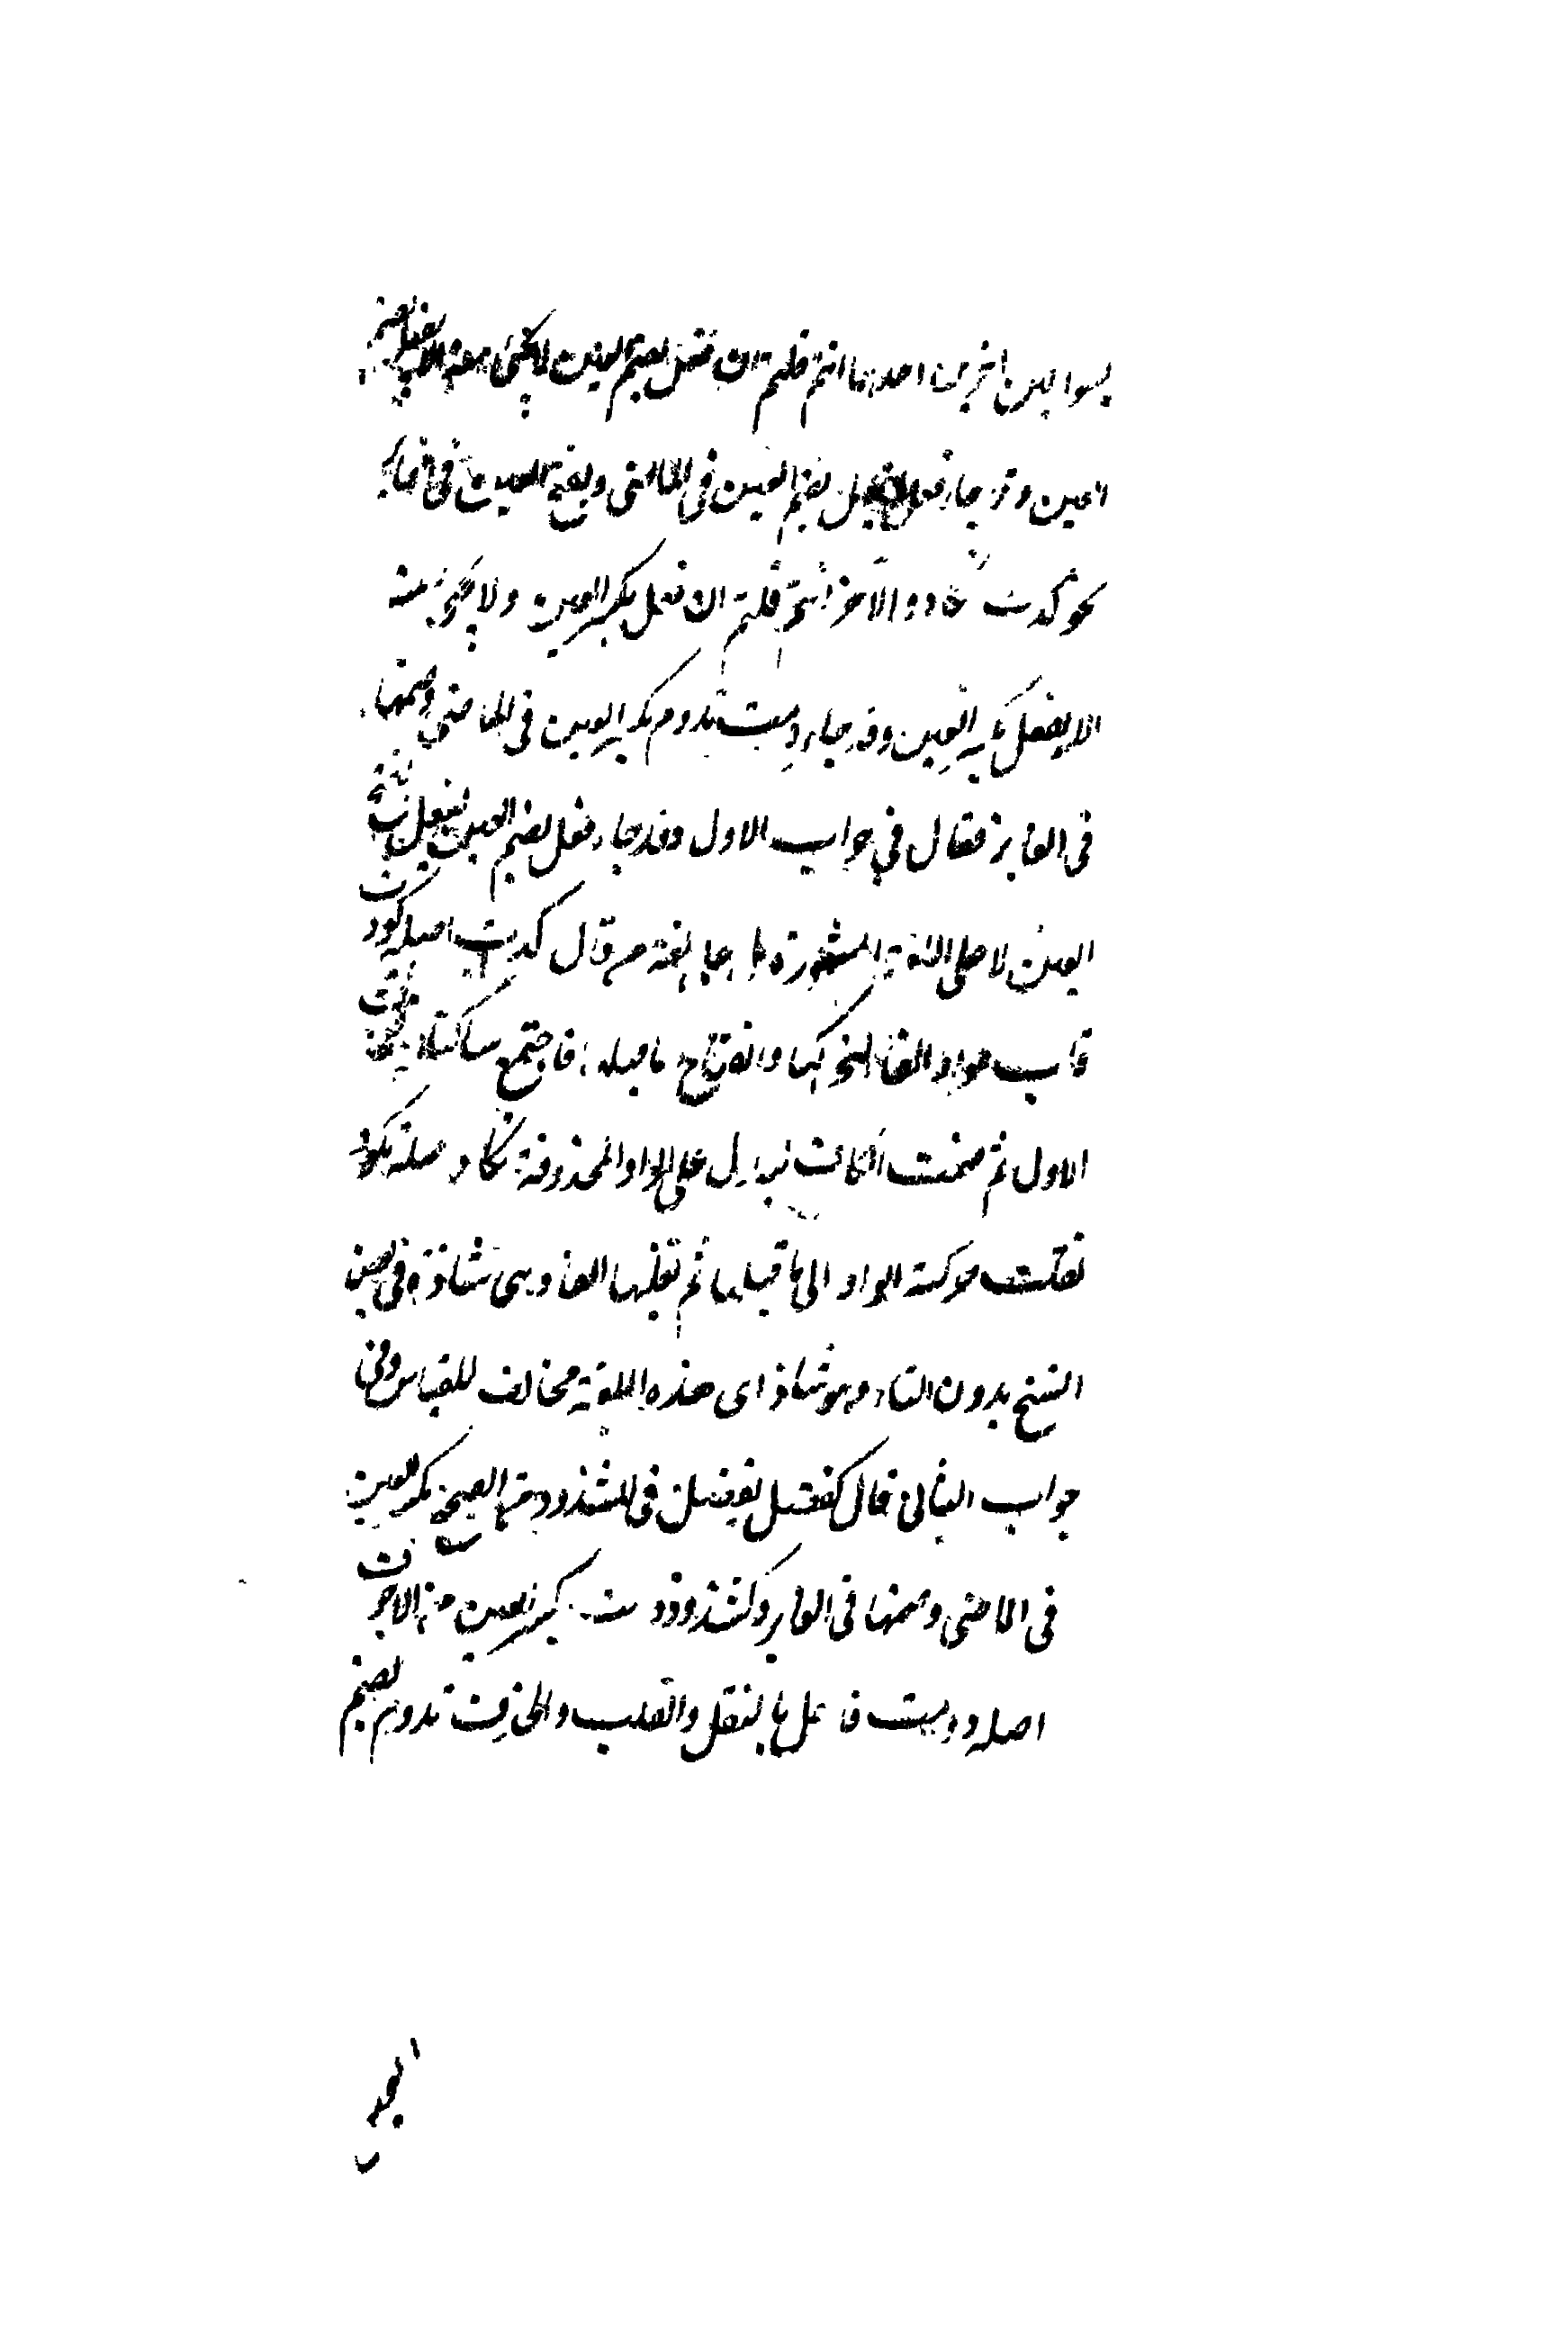 بسوالين اخرين احدهما انتم قلتم ان فعل بضم العين لا يجئ منه الا يفعل بضم
العين وقد جاء فعل يفعل بضم العين فى الماضى وبفتح العين فى الغابر
نحو كدت تكاد والآخر انتم قلتم ان فعل بكسر العين ولا يجئ منه
الا يفعل بكسر العين وقد جاء دمت تدوم بكسر العين فى الماضى وضمها
فى الغابر فقال فى جواب الاول وقد جاء فعل بضم العين يفعل بفتح
العين لا على اللغة المشهورة بل على لغة من قال كدت اصله كودت
قلب الواو الفا لتحركها وانفتاح ما قبلها فاجتمع ساكنان فحذفت
الاول ثم ضمت الكاف ليدل على الواو المحذوفة تكاد اصله تكود
نقلت حركة الواو الى ما قبلها ثم تقلبها الفا وهى شاذة وفى بعض
النسخ بدون التاء وهو شاذ اى هذه اللغة مخالف للقياس وفى
جواب الثانى قال كفضل يفضل فى الشذوذ من الصحيح بكسر العين
فى الماضى وضمها فى الغابر وكشذوذ دمت بكسر العين من الاجوف
اصله دومت فاعل بالنقل والقلب والحذف تدوم بضم